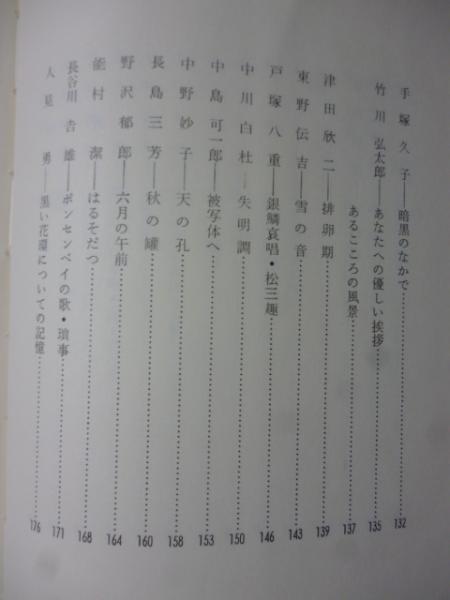 手塚久子――暗黒のなかで……132
竹川弘太郎――あなたへの優しい挨拶……135
あるこころの風景……137
津田欣二――排卵期……139
東野伝吉――雪の音……143
戸塚八重――銀鱗哀唱・松三趣……146
中川白杜――失明調……150
中島可一郎――被写体へ……153
中野妙子――天の孔……158
長島三芳――秋の罐……160
野沢郁郎――六月の午前……164
能村潔――はるそだつ……168
長谷川吉雄――ポンセンベイの歌・瑣事……171
人見勇――黒い花環についての記憶……176